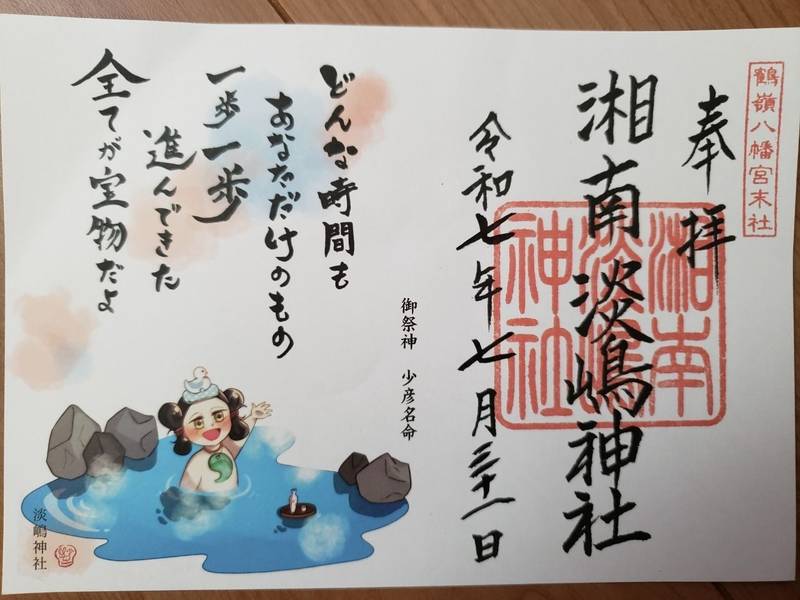 鶴嶺八幡宮末社
奉拝
湘南淡嶋神社
湘南
淡嶋
神社
令和七年七月三十一日
御祭神 少彦名命
どんな時間も
あなただけのもの
一歩一歩
進んできた
全てが宝物だよ
淡嶋神社